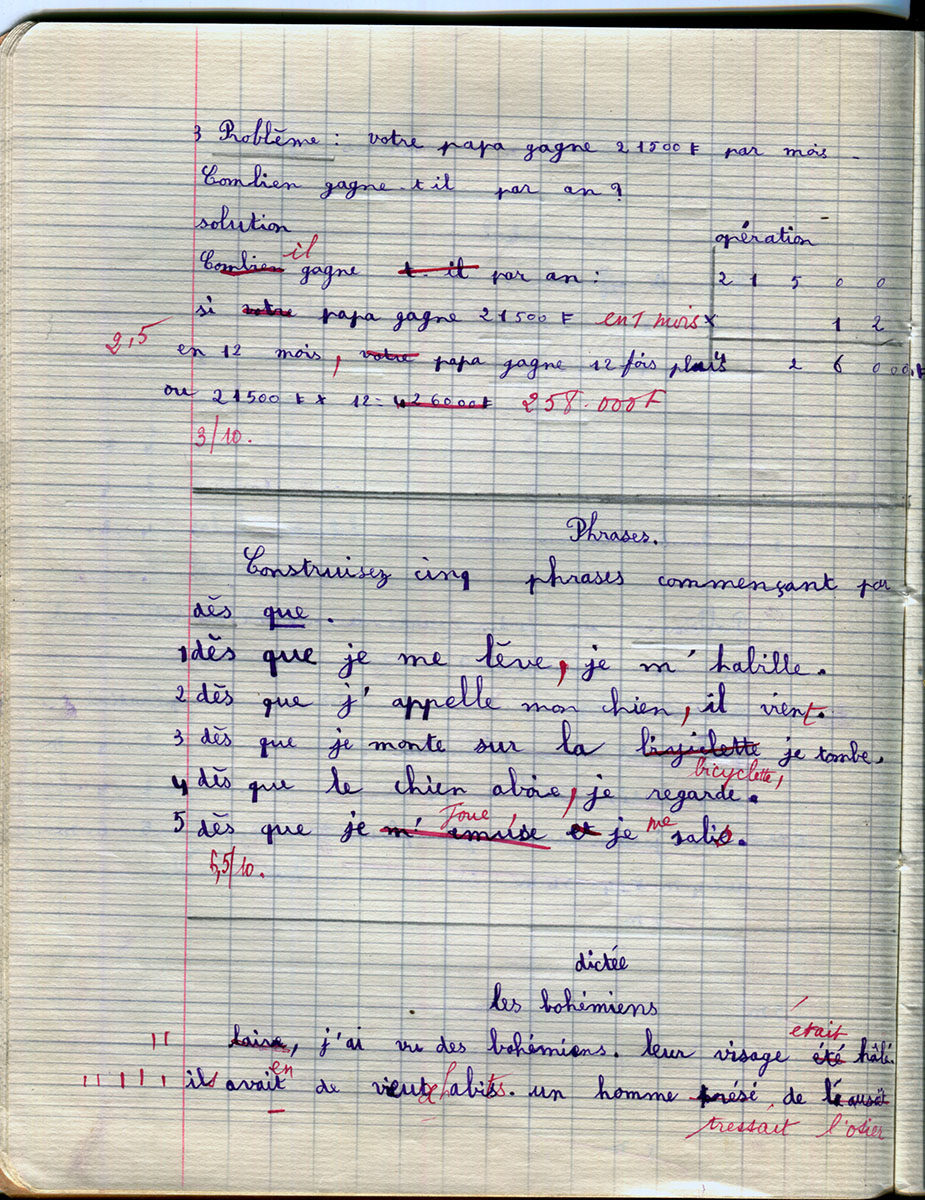 3 Problème : votre papa gagne 21500 F par mois.
Combien gagne-t-il par an ?
solution
opération
il
Combien gagne t-il par an :
2 1 5 0 0
si votre papa gagne 21500 F en 1 mois
x 1 2
2,5
en 12 mois, votre papa gagne 12 fois plus
4 2 6 000.F
ou 21500 F x 12 = 426000F 258.000F
3/10.
Phrases.
Construisez cinq phrases commençant par
dès que.
1 dès que je me lève, je m'habille.
2 dès que j'appelle mon chien, il vient.
3 dès que je monte sur la je tombe.
bicyclette,
4 dès que le chien aboie, je regarde.
Joue, me
5 dès que je m'amuse et je salis.
5,5/10.
dictée
les bohémiens
était
j'ai vu des bohémiens. leur visage été hâlé.
en
ils avait de habits. un homme de
tressait l'osier